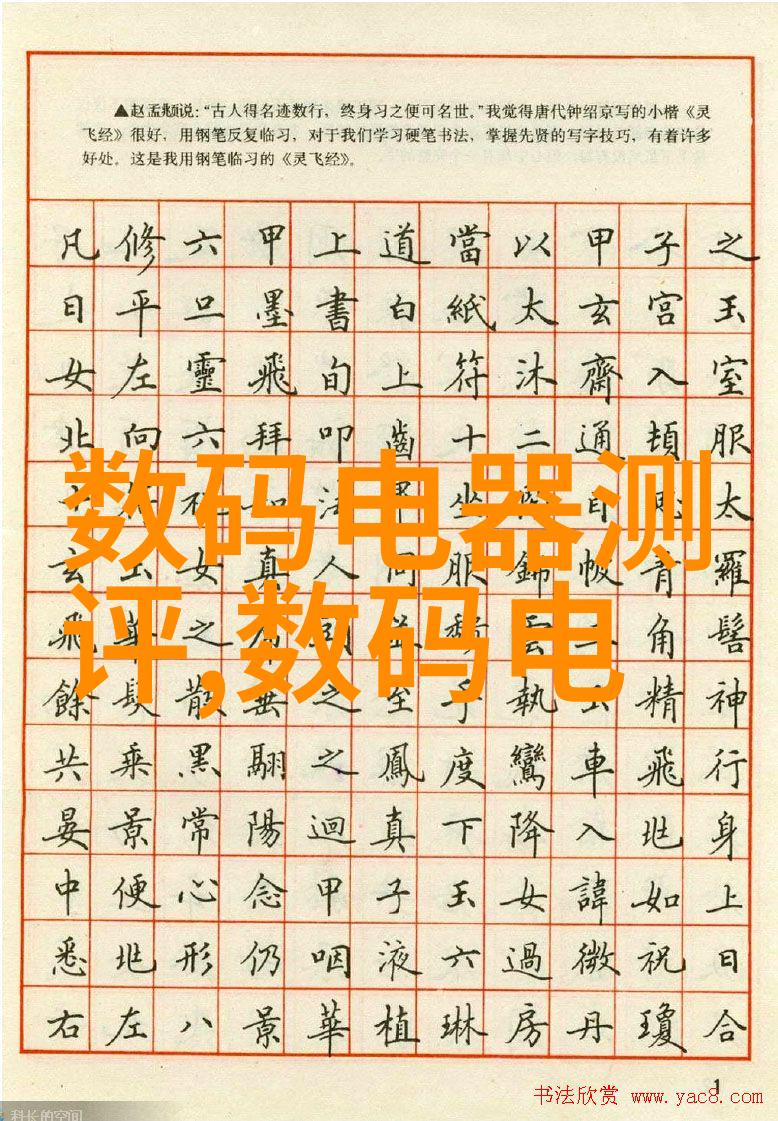 ▲赵孟頫说：“古人得名迹数行，终身习之便可名世。”我觉得唐代钟绍京写的小楷《灵
飞经》很好，用钢笔反复临习，对于我们学习硬笔书法，掌握先贤的写字技巧，有着许多
好处。这是我用钢笔临习的《灵飞经》。
凡修六甲上道當以甲子之
日平旦墨書白紙太玄宮玉
女左靈飛旬上符沐齋入室
北向六拜叩齒十二通頓服
如法坐目太
玄玉女真人同服錦帔青羅
飛華之雲三角髻
餘髮散垂之至手執玉精神
共乘黑翮之鳳度鸞車飛行
晏景常陽迴真下降入北身
中便心念甲子玉女諱如上
悉北形仍咽液六過微祝曰
右左八景華植琳房丹瓊合
数码电器测
评,数码电
1
书法欣赏 www.yac8.com
科长的空间